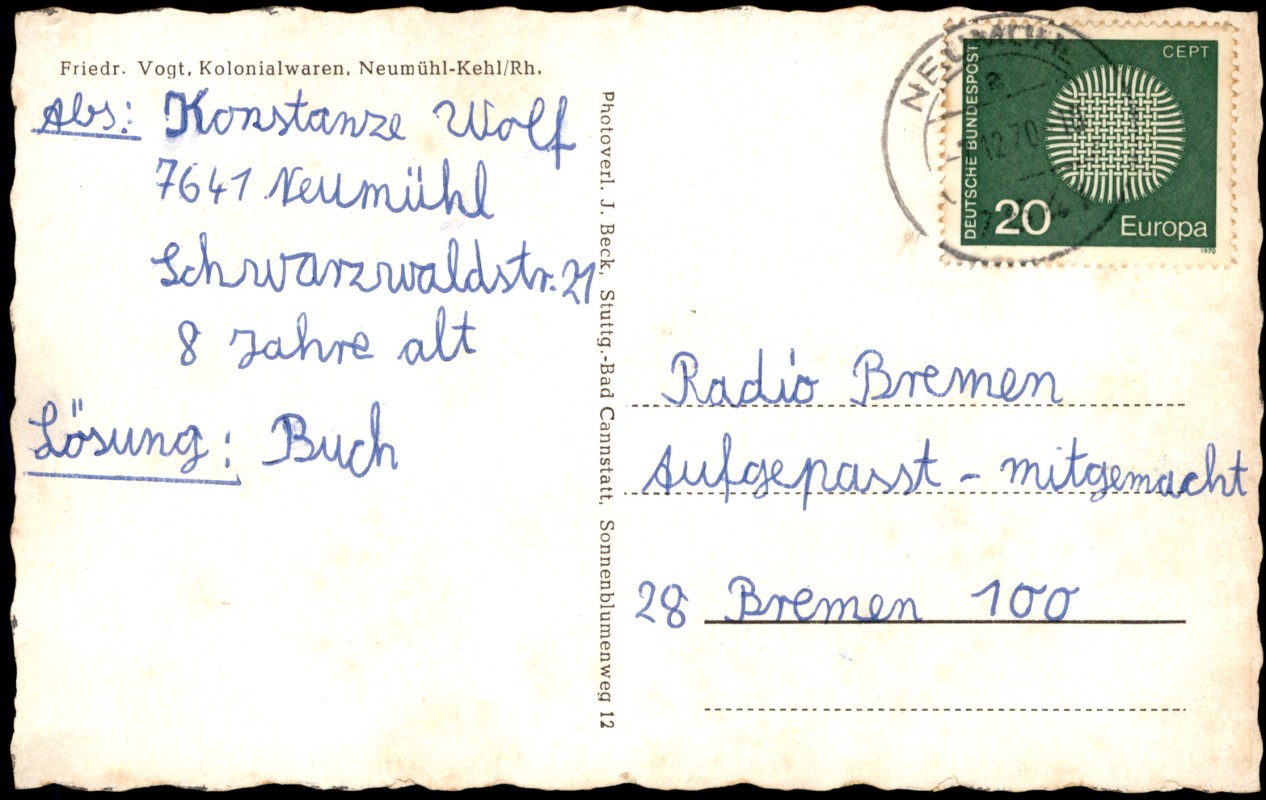 Friedr. Vogt, Kolonialwaren, Neumühl-Kehl/Rh.
Abs: Konstanze Wolf
7641 Neumühl
Schwarzwaldstr. 21
8 Jahre alt
Lösung: Buch
Photoverl. J. Beck, Stuttg.-Bad Cannstatt, Sonnenblumenweg 12
NEUMÜHL
a
12.70
DEUTSCHE BUNDESPOST
CEPT
20
Europa
1970
Radio Bremen
Aufgepasst - mitgemacht
28 Bremen 100